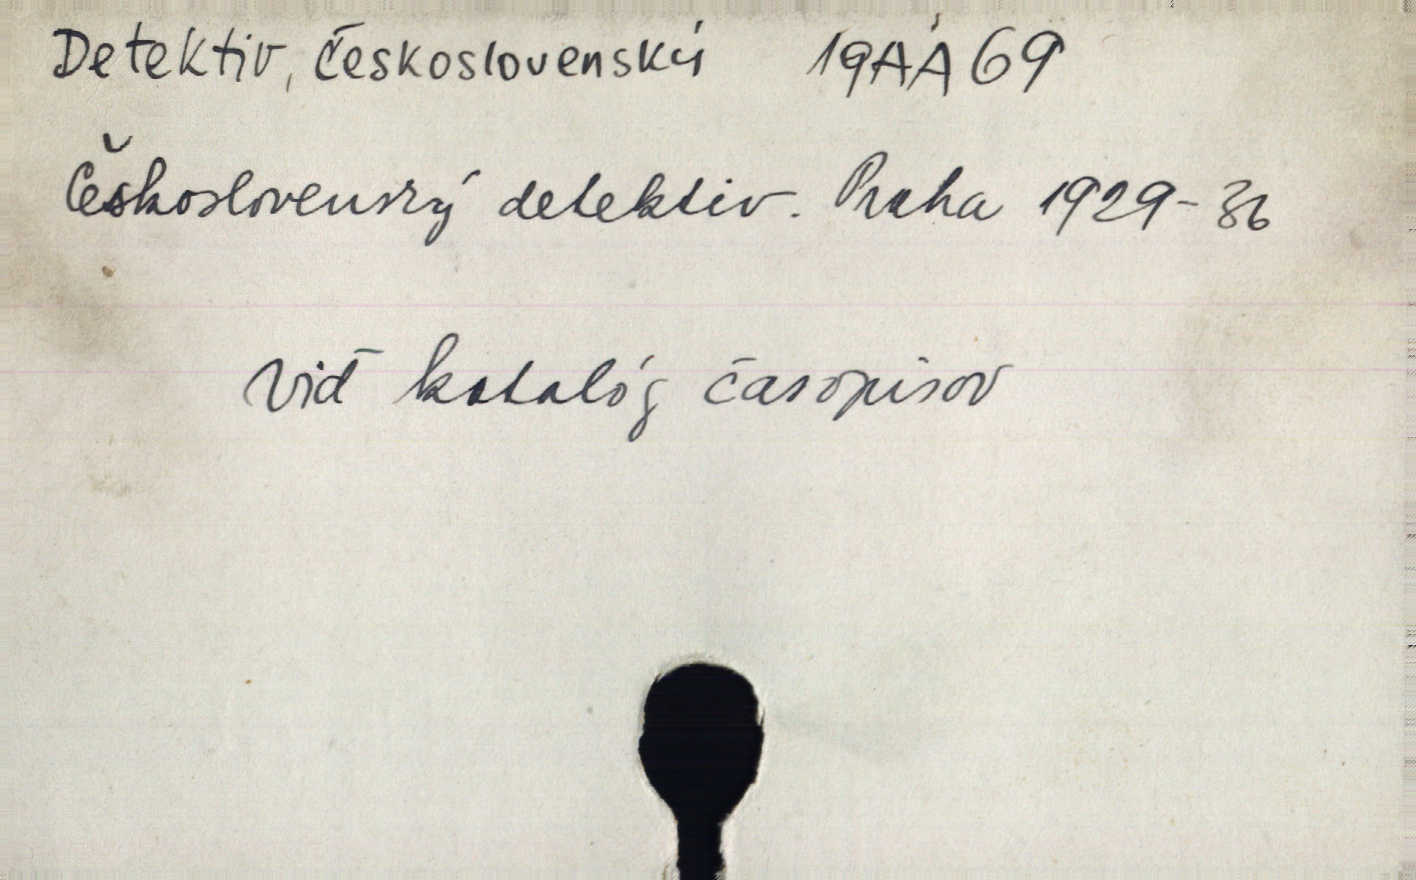 Detektiv, československý 19AÁ69
Československý detektiv. Praha 1929-36
Viď katalóg časopisov